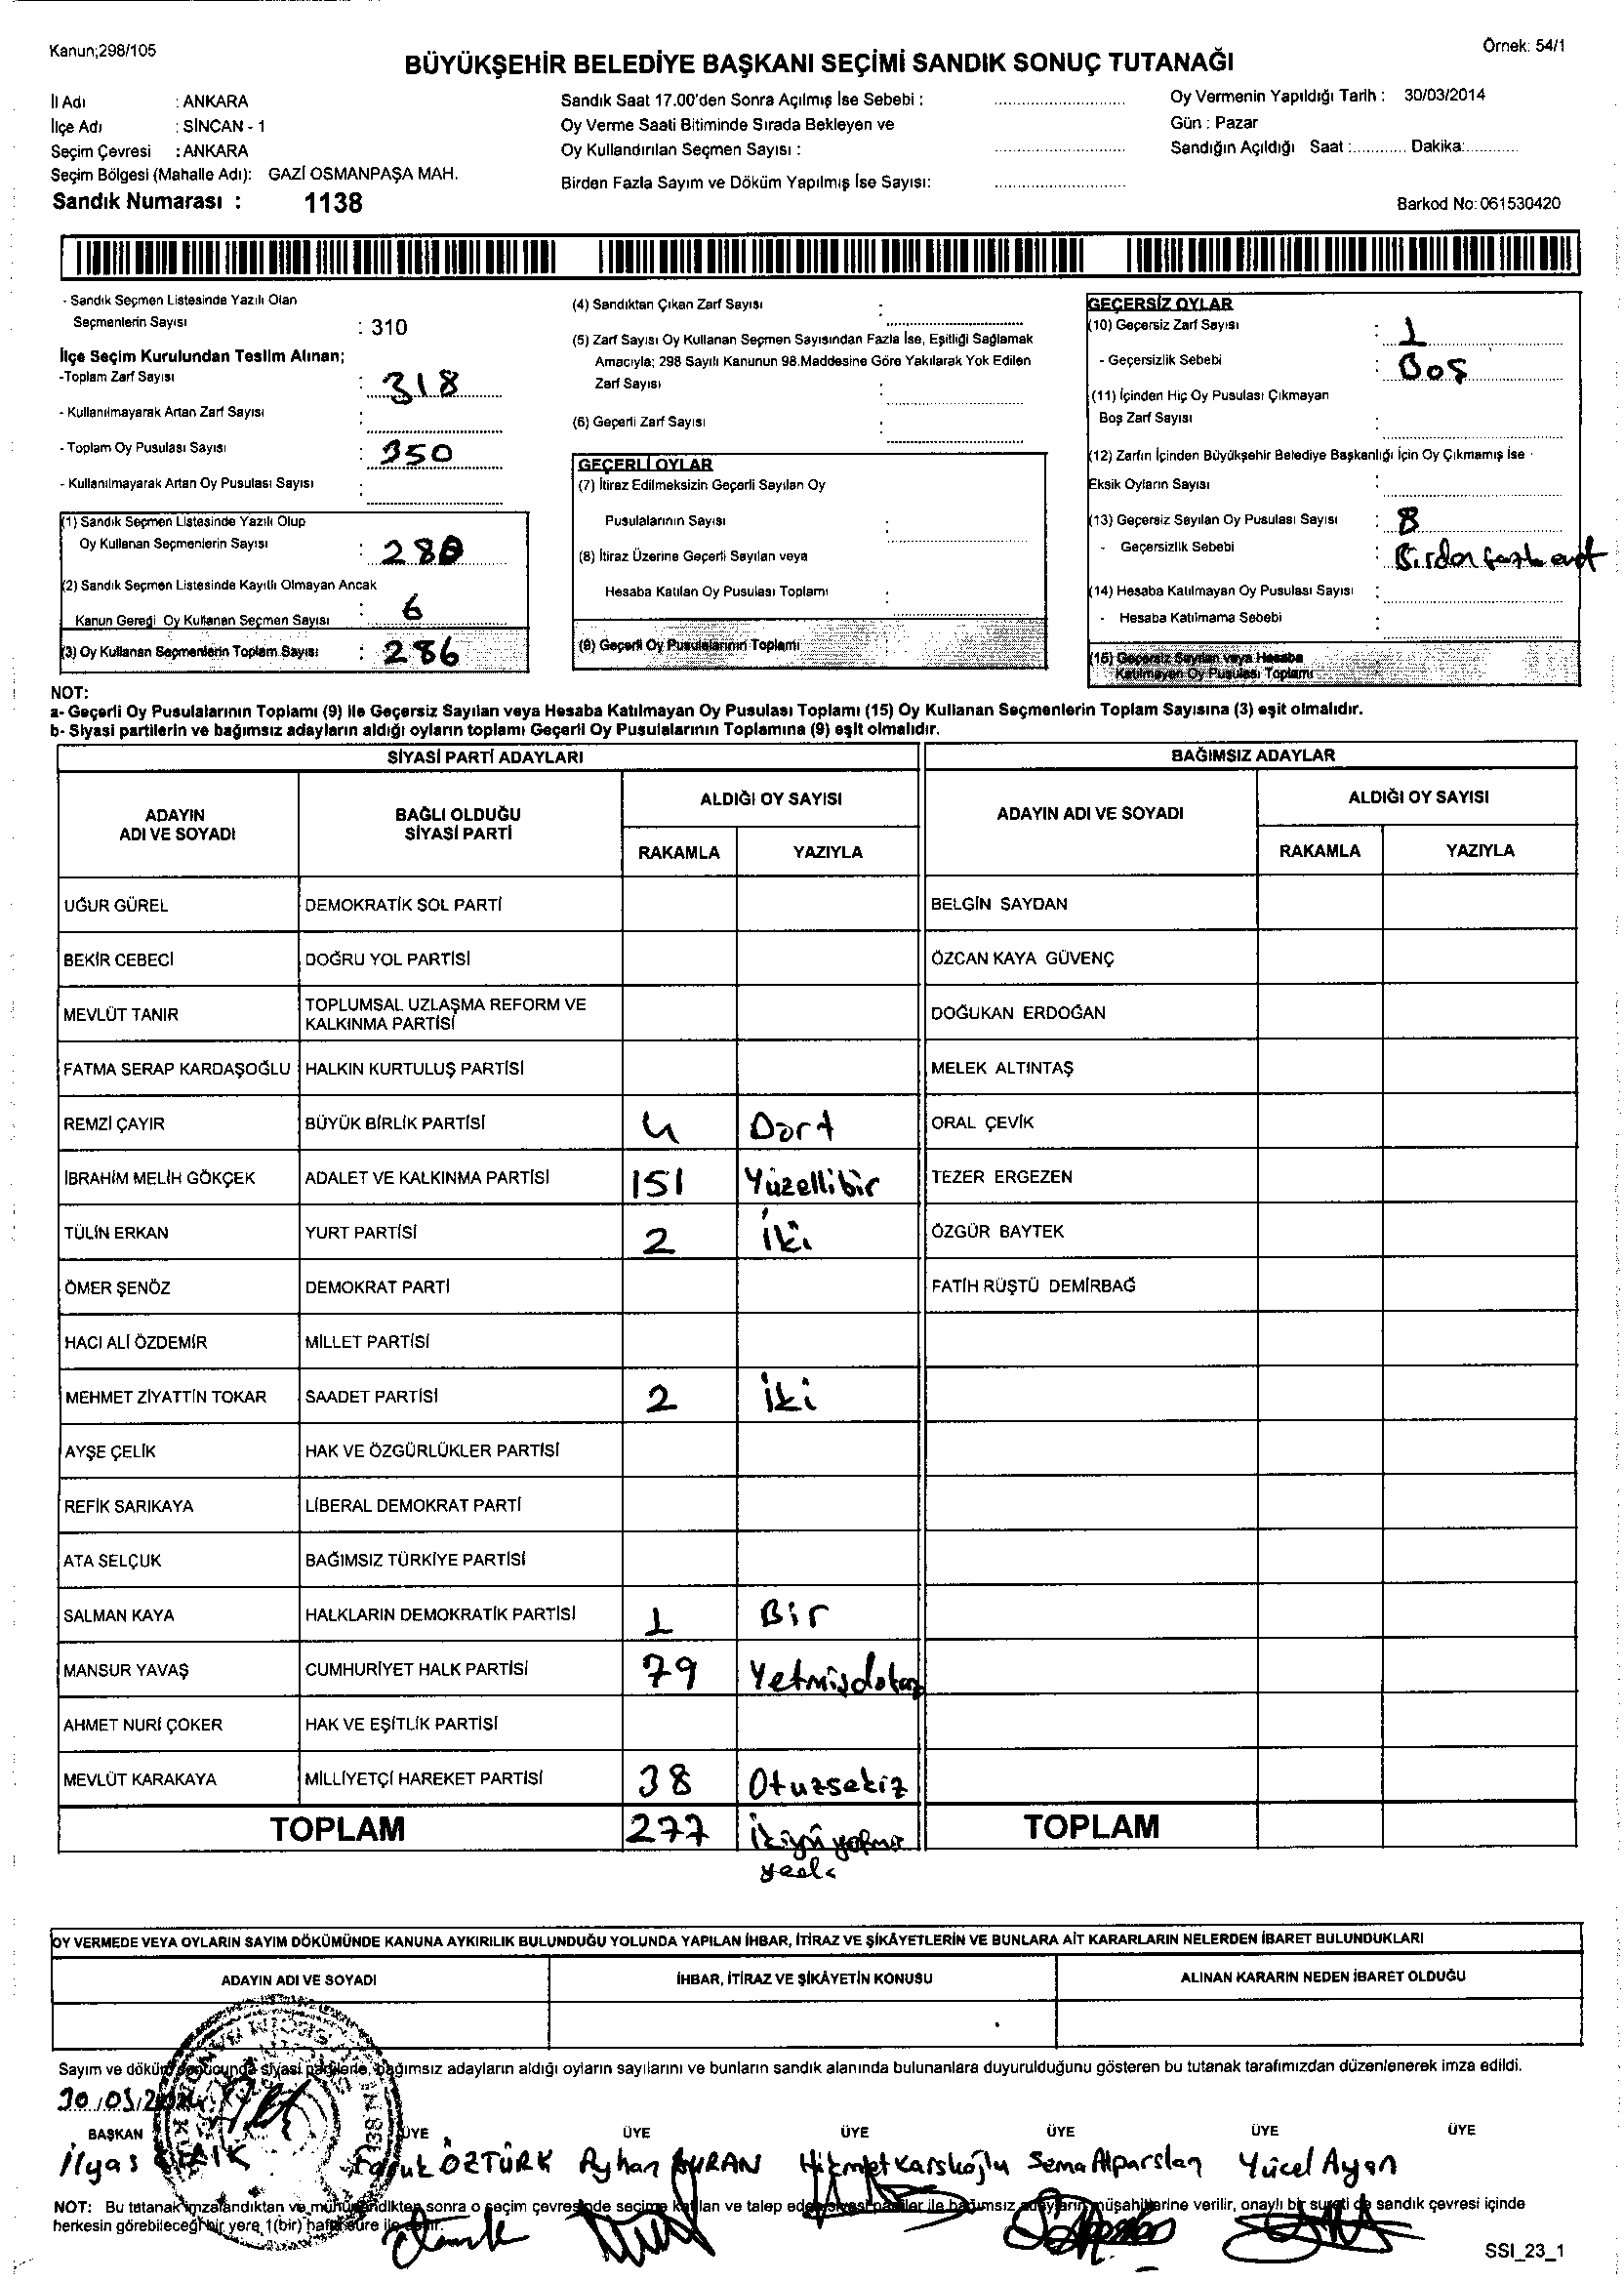 Kanun;298/105
Örnek: 54/1
BÜYÜKŞEHİR BELEDİYE BAŞKANI SEÇİMİ SANDIK SONUÇ TUTANAĞI
İl Adı : ANKARA
İlçe Adı : SİNCAN - 1
Seçim Çevresi : ANKARA
Seçim Bölgesi (Mahalle Adı): GAZİ OSMANPAŞA MAH.
Sandık Numarası : 1138
Sandık Saat 17.00'den Sonra Açılmış İse Sebebi :
Oy Verme Saati Bitiminde Sırada Bekleyen ve
Oy Kullandırılan Seçmen Sayısı :
Birden Fazla Sayım ve Döküm Yapılmış İse Sayısı:
Oy Vermenin Yapıldığı Tarih : 30/03/2014
Gün : Pazar
Sandığın Açıldığı Saat :............ Dakika:............
Barkod No: 061530420
- Sandık Seçmen Listesinde Yazılı Olan
Seçmenlerin Sayısı : 310
İlçe Seçim Kurulundan Teslim Alınan;
-Toplam Zarf Sayısı : 318
- Kullanılmayarak Artan Zarf Sayısı :
- Toplam Oy Pusulası Sayısı : 350
- Kullanılmayarak Artan Oy Pusulası Sayısı :
(1) Sandık Seçmen Listesinde Yazılı Olup
Oy Kullanan Seçmenlerin Sayısı : 280
(2) Sandık Seçmen Listesinde Kayıtlı Olmayan Ancak
Kanun Gereği Oy Kullanan Seçmen Sayısı : 6
(3) Oy Kullanan Seçmenlerin Toplam Sayısı : 286
(4) Sandıktan Çıkan Zarf Sayısı :
(5) Zarf Sayısı Oy Kullanan Seçmen Sayısından Fazla İse, Eşitliği Sağlamak
Amacıyla; 298 Sayılı Kanunun 98.Maddesine Göre Yakılarak Yok Edilen
Zarf Sayısı :
(6) Geçerli Zarf Sayısı :
GEÇERLİ OYLAR
(7) İtiraz Edilmeksizin Geçerli Sayılan Oy
Pusulalarının Sayısı :
(8) İtiraz Üzerine Geçerli Sayılan veya
Hesaba Katılan Oy Pusulası Toplamı :
(9) Geçerli Oy Pusulalarının Toplamı
GEÇERSİZ OYLAR
(10) Geçersiz Zarf Sayısı : 1
- Geçersizlik Sebebi : Boş
(11) İçinden Hiç Oy Pusulası Çıkmayan
Boş Zarf Sayısı :
(12) Zarfın İçinden Büyükşehir Belediye Başkanlığı İçin Oy Çıkmamış İse
Eksik Oyların Sayısı :
(13) Geçersiz Sayılan Oy Pusulası Sayısı : 8
- Geçersizlik Sebebi : Birden fazla evet
(14) Hesaba Katılmayan Oy Pusulası Sayısı :
- Hesaba Katılmama Sebebi :
(15) Geçersiz Sayılan veya Hesaba
Katılmayan Oy Pusulası Toplamı
NOT:
a- Geçerli Oy Pusulalarının Toplamı (9) ile Geçersiz Sayılan veya Hesaba Katılmayan Oy Pusulası Toplamı (15) Oy Kullanan Seçmenlerin Toplam Sayısına (3) eşit olmalıdır.
b- Siyasi partilerin ve bağımsız adayların aldığı oyların toplamı Geçerli Oy Pusulalarının Toplamına (9) eşit olmalıdır.
SİYASİ PARTİ ADAYLARI BAĞIMSIZ ADAYLAR
ADAYIN ADI VE SOYADI BAĞLI OLDUĞU SİYASİ PARTİ ALDIĞI OY SAYISI ADAYIN ADI VE SOYADI ALDIĞI OY SAYISI
RAKAMLA YAZIYLA RAKAMLA YAZIYLA
UĞUR GÜREL DEMOKRATİK SOL PARTİ BELGİN SAYDAN
BEKİR CEBECİ DOĞRU YOL PARTİSİ ÖZCAN KAYA GÜVENÇ
MEVLÜT TANIR TOPLUMSAL UZLAŞMA REFORM VE KALKINMA PARTİSİ DOĞUKAN ERDOĞAN
FATMA SERAP KARDAŞOĞLU HALKIN KURTULUŞ PARTİSİ MELEK ALTINTAŞ
REMZİ ÇAYIR BÜYÜK BİRLİK PARTİSİ 4 Dört ORAL ÇEVİK
İBRAHİM MELİH GÖKÇEK ADALET VE KALKINMA PARTİSİ 151 Yüzellibir TEZER ERGEZEN
TÜLİN ERKAN YURT PARTİSİ 2 İki ÖZGÜR BAYTEK
ÖMER ŞENÖZ DEMOKRAT PARTİ FATİH RÜŞTÜ DEMİRBAĞ
HACI ALİ ÖZDEMİR MİLLET PARTİSİ
MEHMET ZİYATTİN TOKAR SAADET PARTİSİ 2 İki
AYŞE ÇELİK HAK VE ÖZGÜRLÜKLER PARTİSİ
REFİK SARIKAYA LİBERAL DEMOKRAT PARTİ
ATA SELÇUK BAĞIMSIZ TÜRKİYE PARTİSİ
SALMAN KAYA HALKLARIN DEMOKRATİK PARTİSİ 1 Bir
MANSUR YAVAŞ CUMHURİYET HALK PARTİSİ 79 Yetmişdokuz
AHMET NURİ ÇOKER HAK VE EŞİTLİK PARTİSİ
MEVLÜT KARAKAYA MİLLİYETÇİ HAREKET PARTİSİ 38 Otuzsekiz
TOPLAM 277 TOPLAM
OY VERMEDE VEYA OYLARIN SAYIM DÖKÜMÜNDE KANUNA AYKIRILIK BULUNDUĞU YOLUNDA YAPILAN İHBAR, İTİRAZ VE ŞİKÂYETLERİN VE BUNLARA AİT KARARLARIN NELERDEN İBARET BULUNDUKLARI
ADAYIN ADI VE SOYADI İHBAR, İTİRAZ VE ŞİKÂYETİN KONUSU ALINAN KARARIN NEDEN İBARET OLDUĞU
Sayım ve döküm sonucunda siyasi partilerle, bağımsız adayların aldığı oyların sayılarını ve bunların sandık alanında bulunanlara duyurulduğunu gösteren bu tutanak tarafımızdan düzenlenerek imza edildi.
30/03/2014
BAŞKAN ÜYE ÜYE ÜYE ÜYE ÜYE ÜYE
İlyas Faruk ÖZTÜRK Ayhan Hikmet Karslıoğlu Sema Alparslan Yücel Aygn
NOT: Bu tutanak imzalandıktan ve mühürlendikten sonra o seçim çevresinde seçime katılan ve talep eden siyasi partiler ile bağımsız adayların müşahitlerine verilir, onaylı bir sureti de sandık çevresi içinde
herkesin görebileceği bir yere 1(bir) hafta süre ile asılır.
SSI_23_1